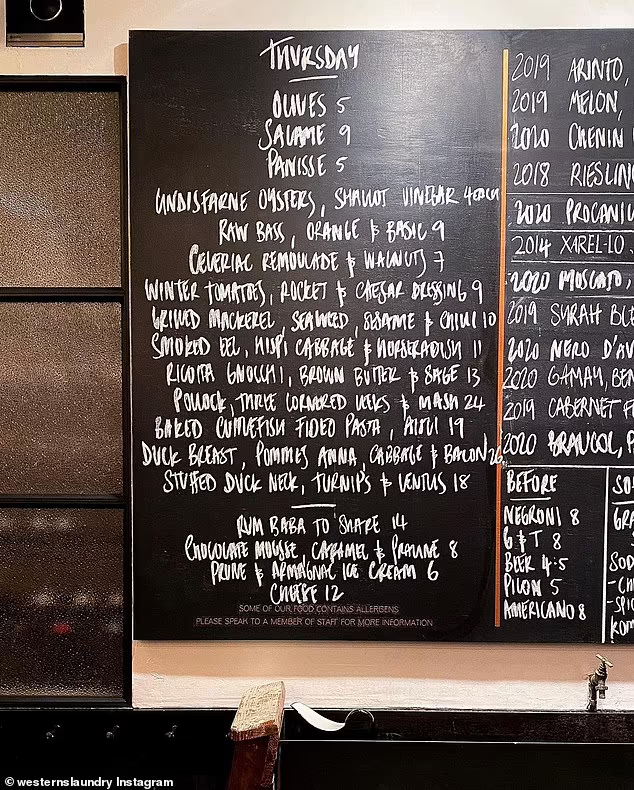 THURSDAY
OLIVES 5
SALAME 9
PANISSE 5
LINDISFARNE OYSTERS, SHALLOT VINEGAR 4 EACH
RAW BASS, ORANGE & BASIL 9
CELERIAC REMOULADE & WALNUTS 7
WINTER TOMATOES, ROCKET & CAESAR DRESSING 9
GRILLED MACKEREL, SEAWEED, SESAME & CHILLI 10
SMOKED EEL, HISPI CABBAGE & HORSERADISH 11
RICOTTA GNOCCHI, BROWN BUTTER & SAGE 13
POLLOCK, THREE CORNERED LEEKS & MASH 24
BAKED CUTTLEFISH FIDEO PASTA, AIOLI 19
DUCK BREAST, POMMES ANNA, CABBAGE & BACON 26
STUFFED DUCK NECK, TURNIPS & LENTILS 18
RUM BABA TO SHARE 14
CHOCOLATE MOUSSE, CARAMEL & PRALINE 8
PRUNE & ARMAGNAC ICE CREAM 6
CHEESE 12
SOME OF OUR FOOD CONTAINS ALLERGENS
PLEASE SPEAK TO A MEMBER OF STAFF FOR MORE INFORMATION
2019 ARINTO,
2019 MELON,
2020 CHENIN
2018 RIESLIN
2020 PROCANIC
2014 XAREL-LO
2020 MOSCATO,
2019 SYRAH BLE
2020 NERO D'AV
2020 GAMAY, BEN
2019 CABERNET F
2020 BRAUCOL, P
BEFORE
NEGRONI 8
G & T 8
BEER 4.5
PILON 5
AMERICANO 8
SO
GRA
SOD
-CH
-SPIC
KOM
© westernslaundry Instagram